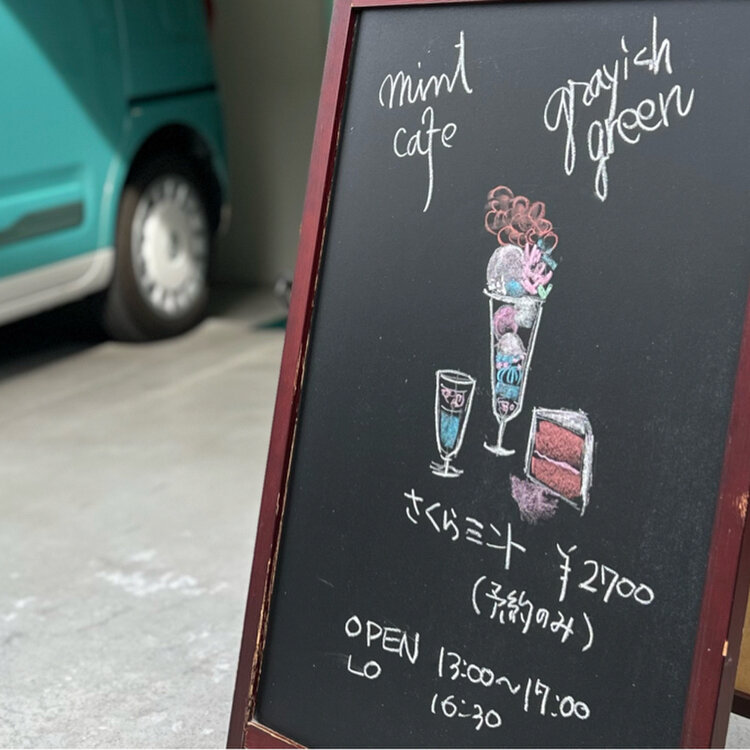 mint
cafe
grayish
green
さくらミント ¥2700
(予約のみ)
OPEN 13:00~17:00
LO 16:30